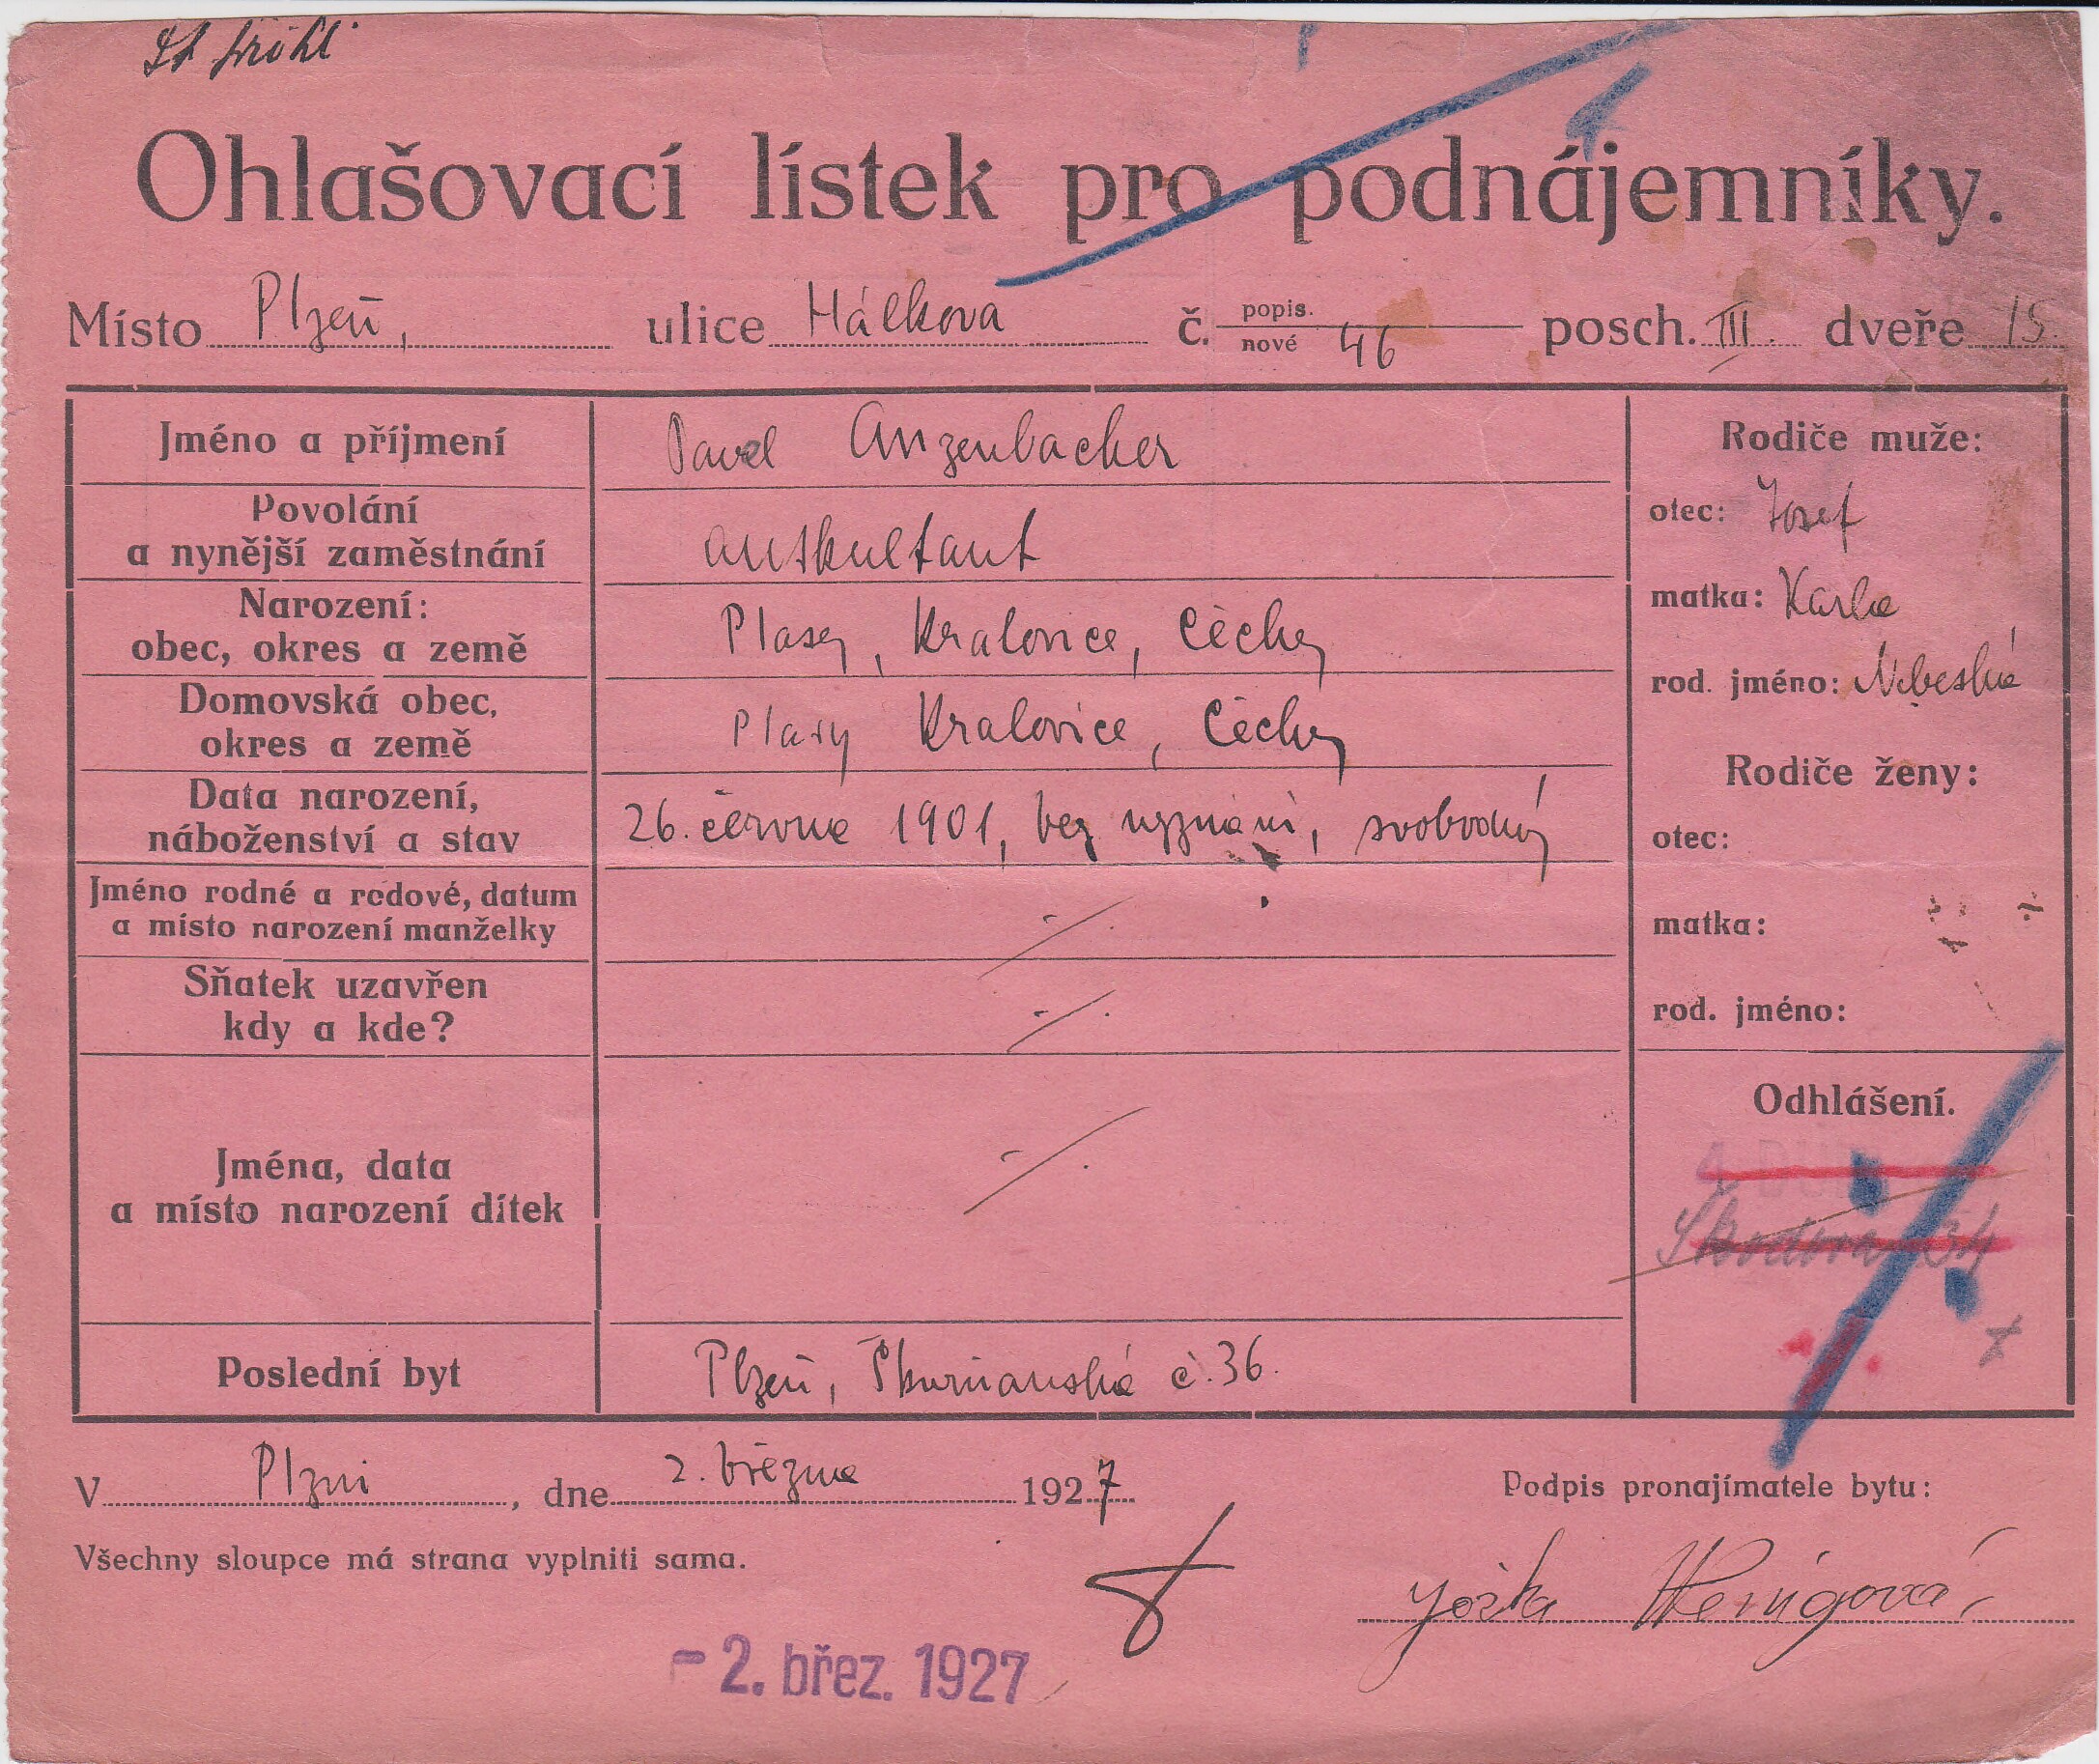 Ohlašovací lístek pro podnájemníky.
Místo Plzeň, ulice Hálkova č. popis. nové 46 posch. III. dveře 15.
Jméno a příjmení Pavel Anzenbacher
Povolání
a nynější zaměstnání auskultant
Narození:
obec, okres a země Plasy, Kralovice, Čechy
Domovská obec,
okres a země Plasy Kralovice, Čechy
Data narození,
náboženství a stav 26. června 1901, bez vyznání, svobodný
Jméno rodné a rodové, datum
a místo narození manželky
Sňatek uzavřen
kdy a kde?
Jména, data
a místo narození dítek
Poslední byt Plzeň, Skvrňanská č. 36.
Rodiče muže:
otec: Josef
matka: Karla
rod. jméno: Nebeská
Rodiče ženy:
otec:
matka:
rod. jméno:
Odhlášení.
Škodova 34
V Plzni, dne 2. března 1927
Podpis pronajímatele bytu:
Všechny sloupce má strana vyplniti sama.
- 2. břez. 1927